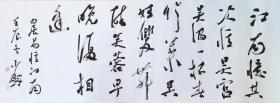 江南憶其
次憶吳宮
吳酒一杯春
竹葉吳
娃雙舞
醉芙蓉早
晚復相
逢
白居易憶江南
壬辰